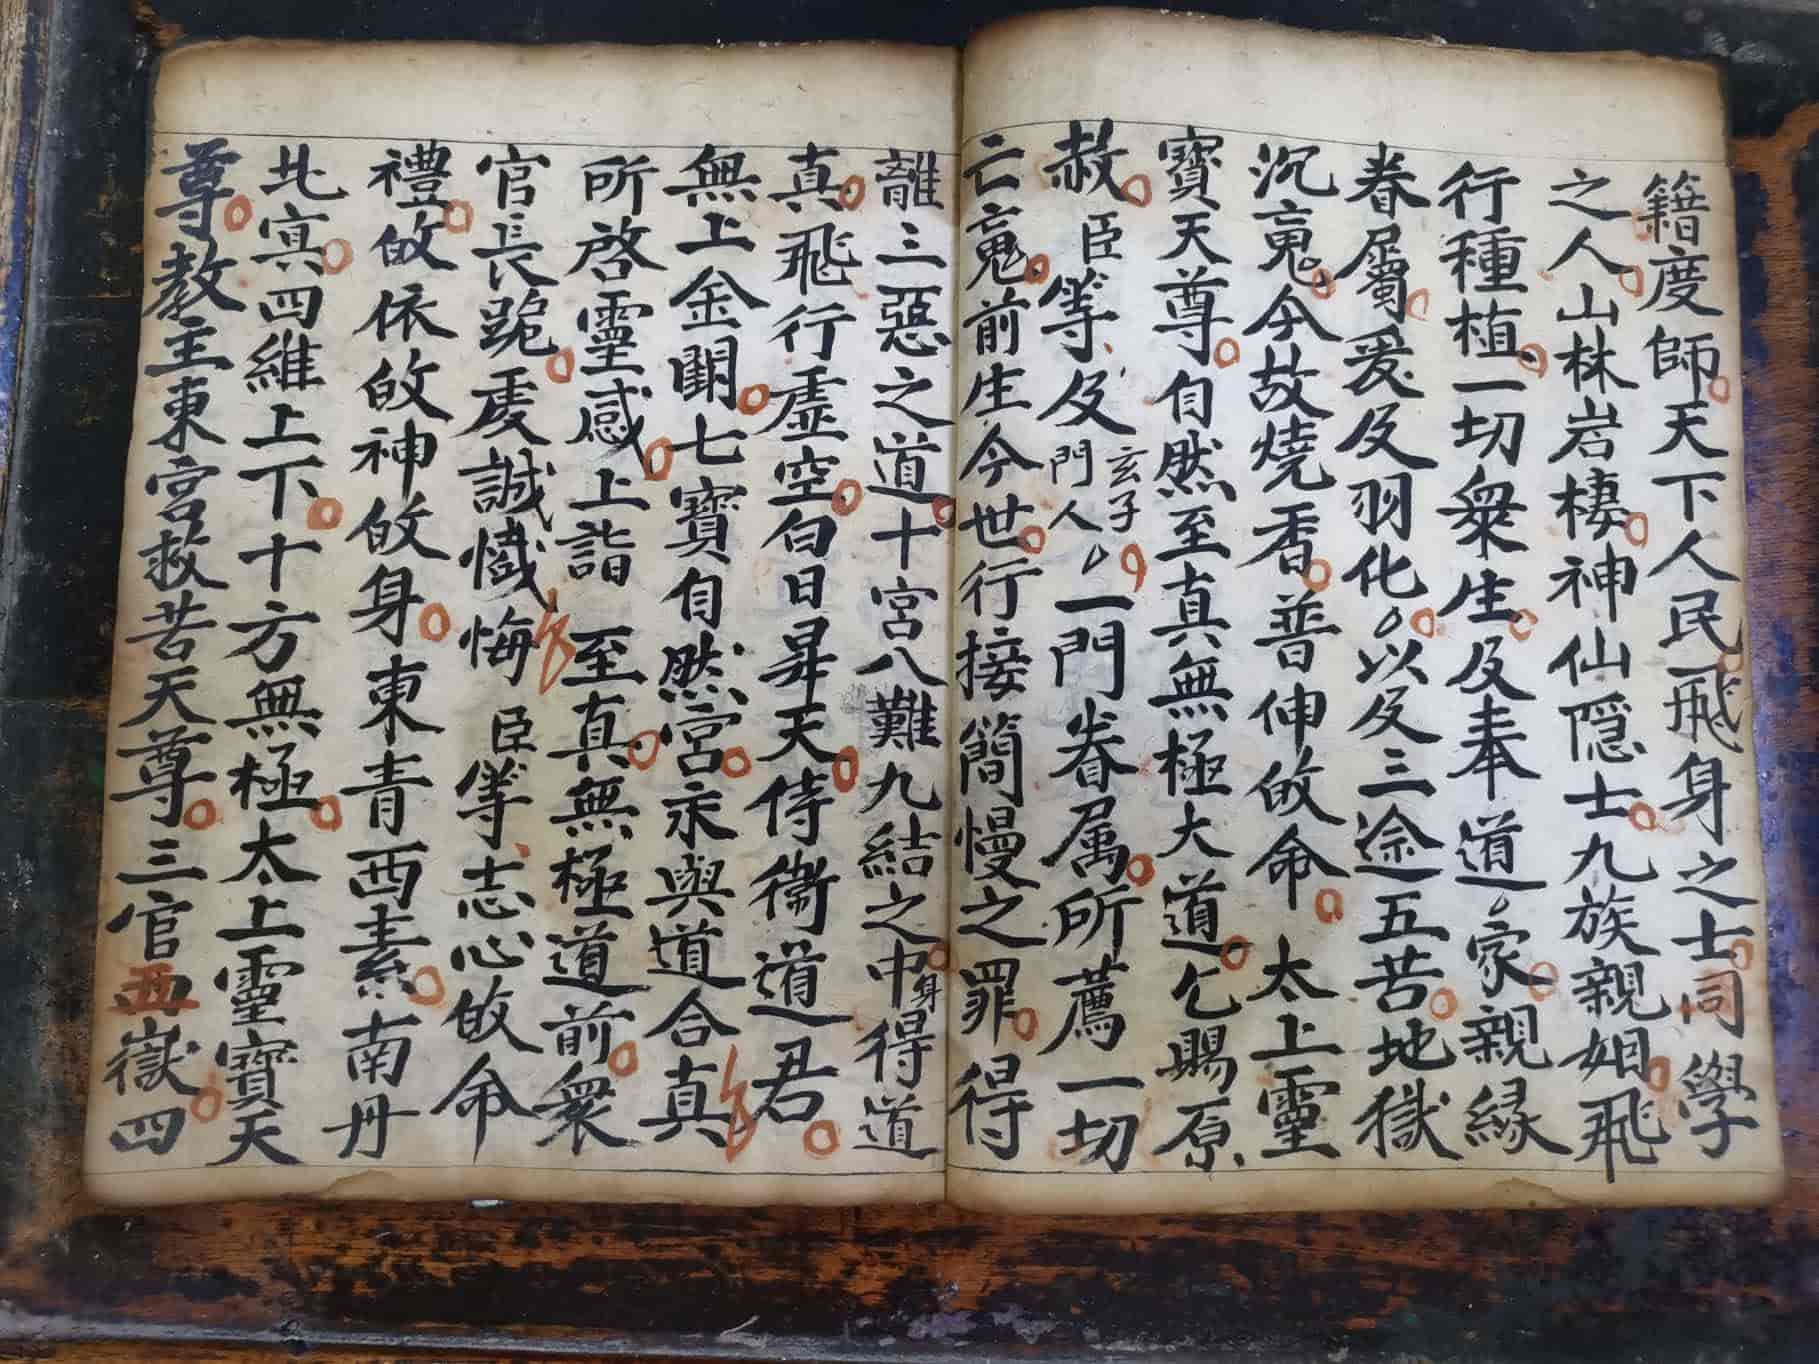 籍度師天下人民飛身之士同學
之人山林岩棲神仙隠士九族親姻飛
行種植一切衆生及奉道家親緣
眷屬爰及羽化以及三途五苦地獄
沉䰟今故燒香普伸皈命太上靈
寶天尊自然至真無極大道乞賜原
赦臣等及玄子門人一門眷属所薦一切
亡䰟前生今世行接簡慢之罪得
離三惡之道十宮八難九結之中身得道
真飛行虛空白日昇天侍衛道君
無上金闕七寶自然宮永與道合真
所啓靈感上詣至真無極道前衆
官長跪虔誠懺悔臣等志心皈命
禮皈依皈神皈身東青西素南丹
北寘四維上下十方無極太上靈寶天
尊教主東宮救苦天尊三官四嶽四